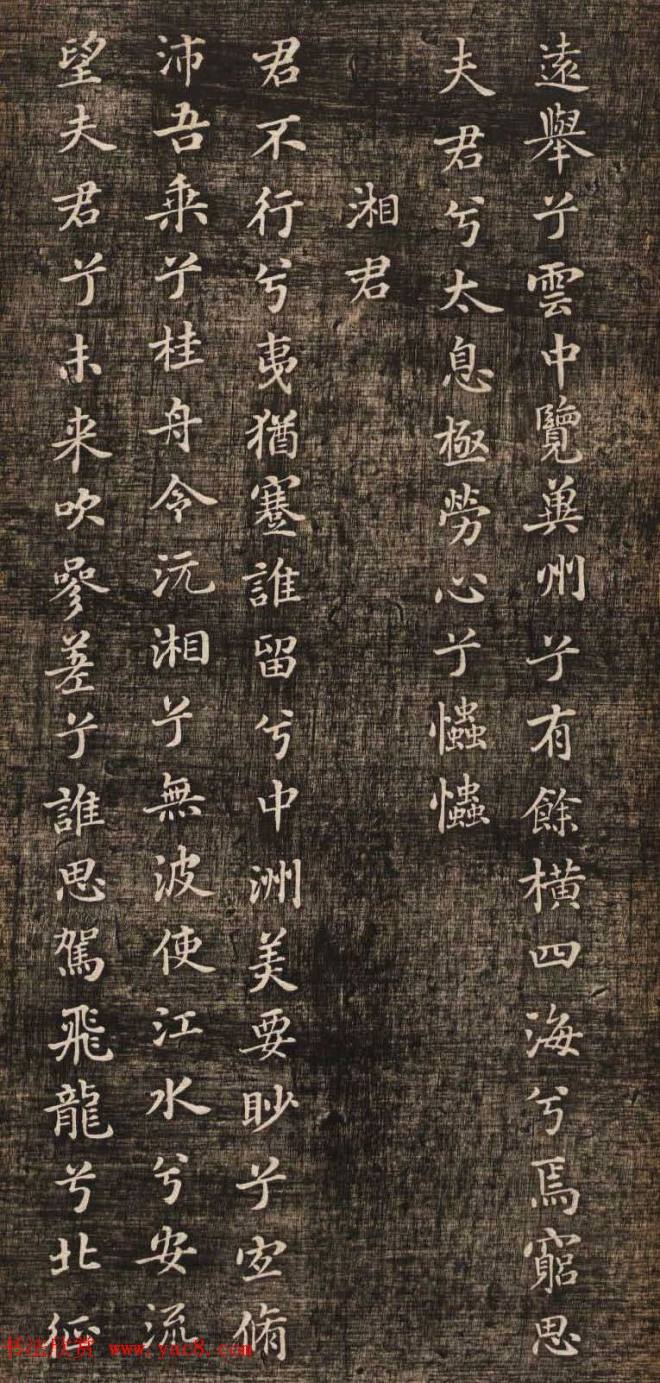 遠舉兮雲中覽兾州兮有餘橫四海兮焉窮思
夫君兮太息極勞心兮㦜㦜
湘君
君不行兮夷猶蹇誰留兮中洲美要眇兮宜脩
沛吾乘兮桂舟令沅湘兮無波使江水兮安流
望夫君兮未来吹參差兮誰思駕飛龍兮北征
书法欣赏 www.yac8.com